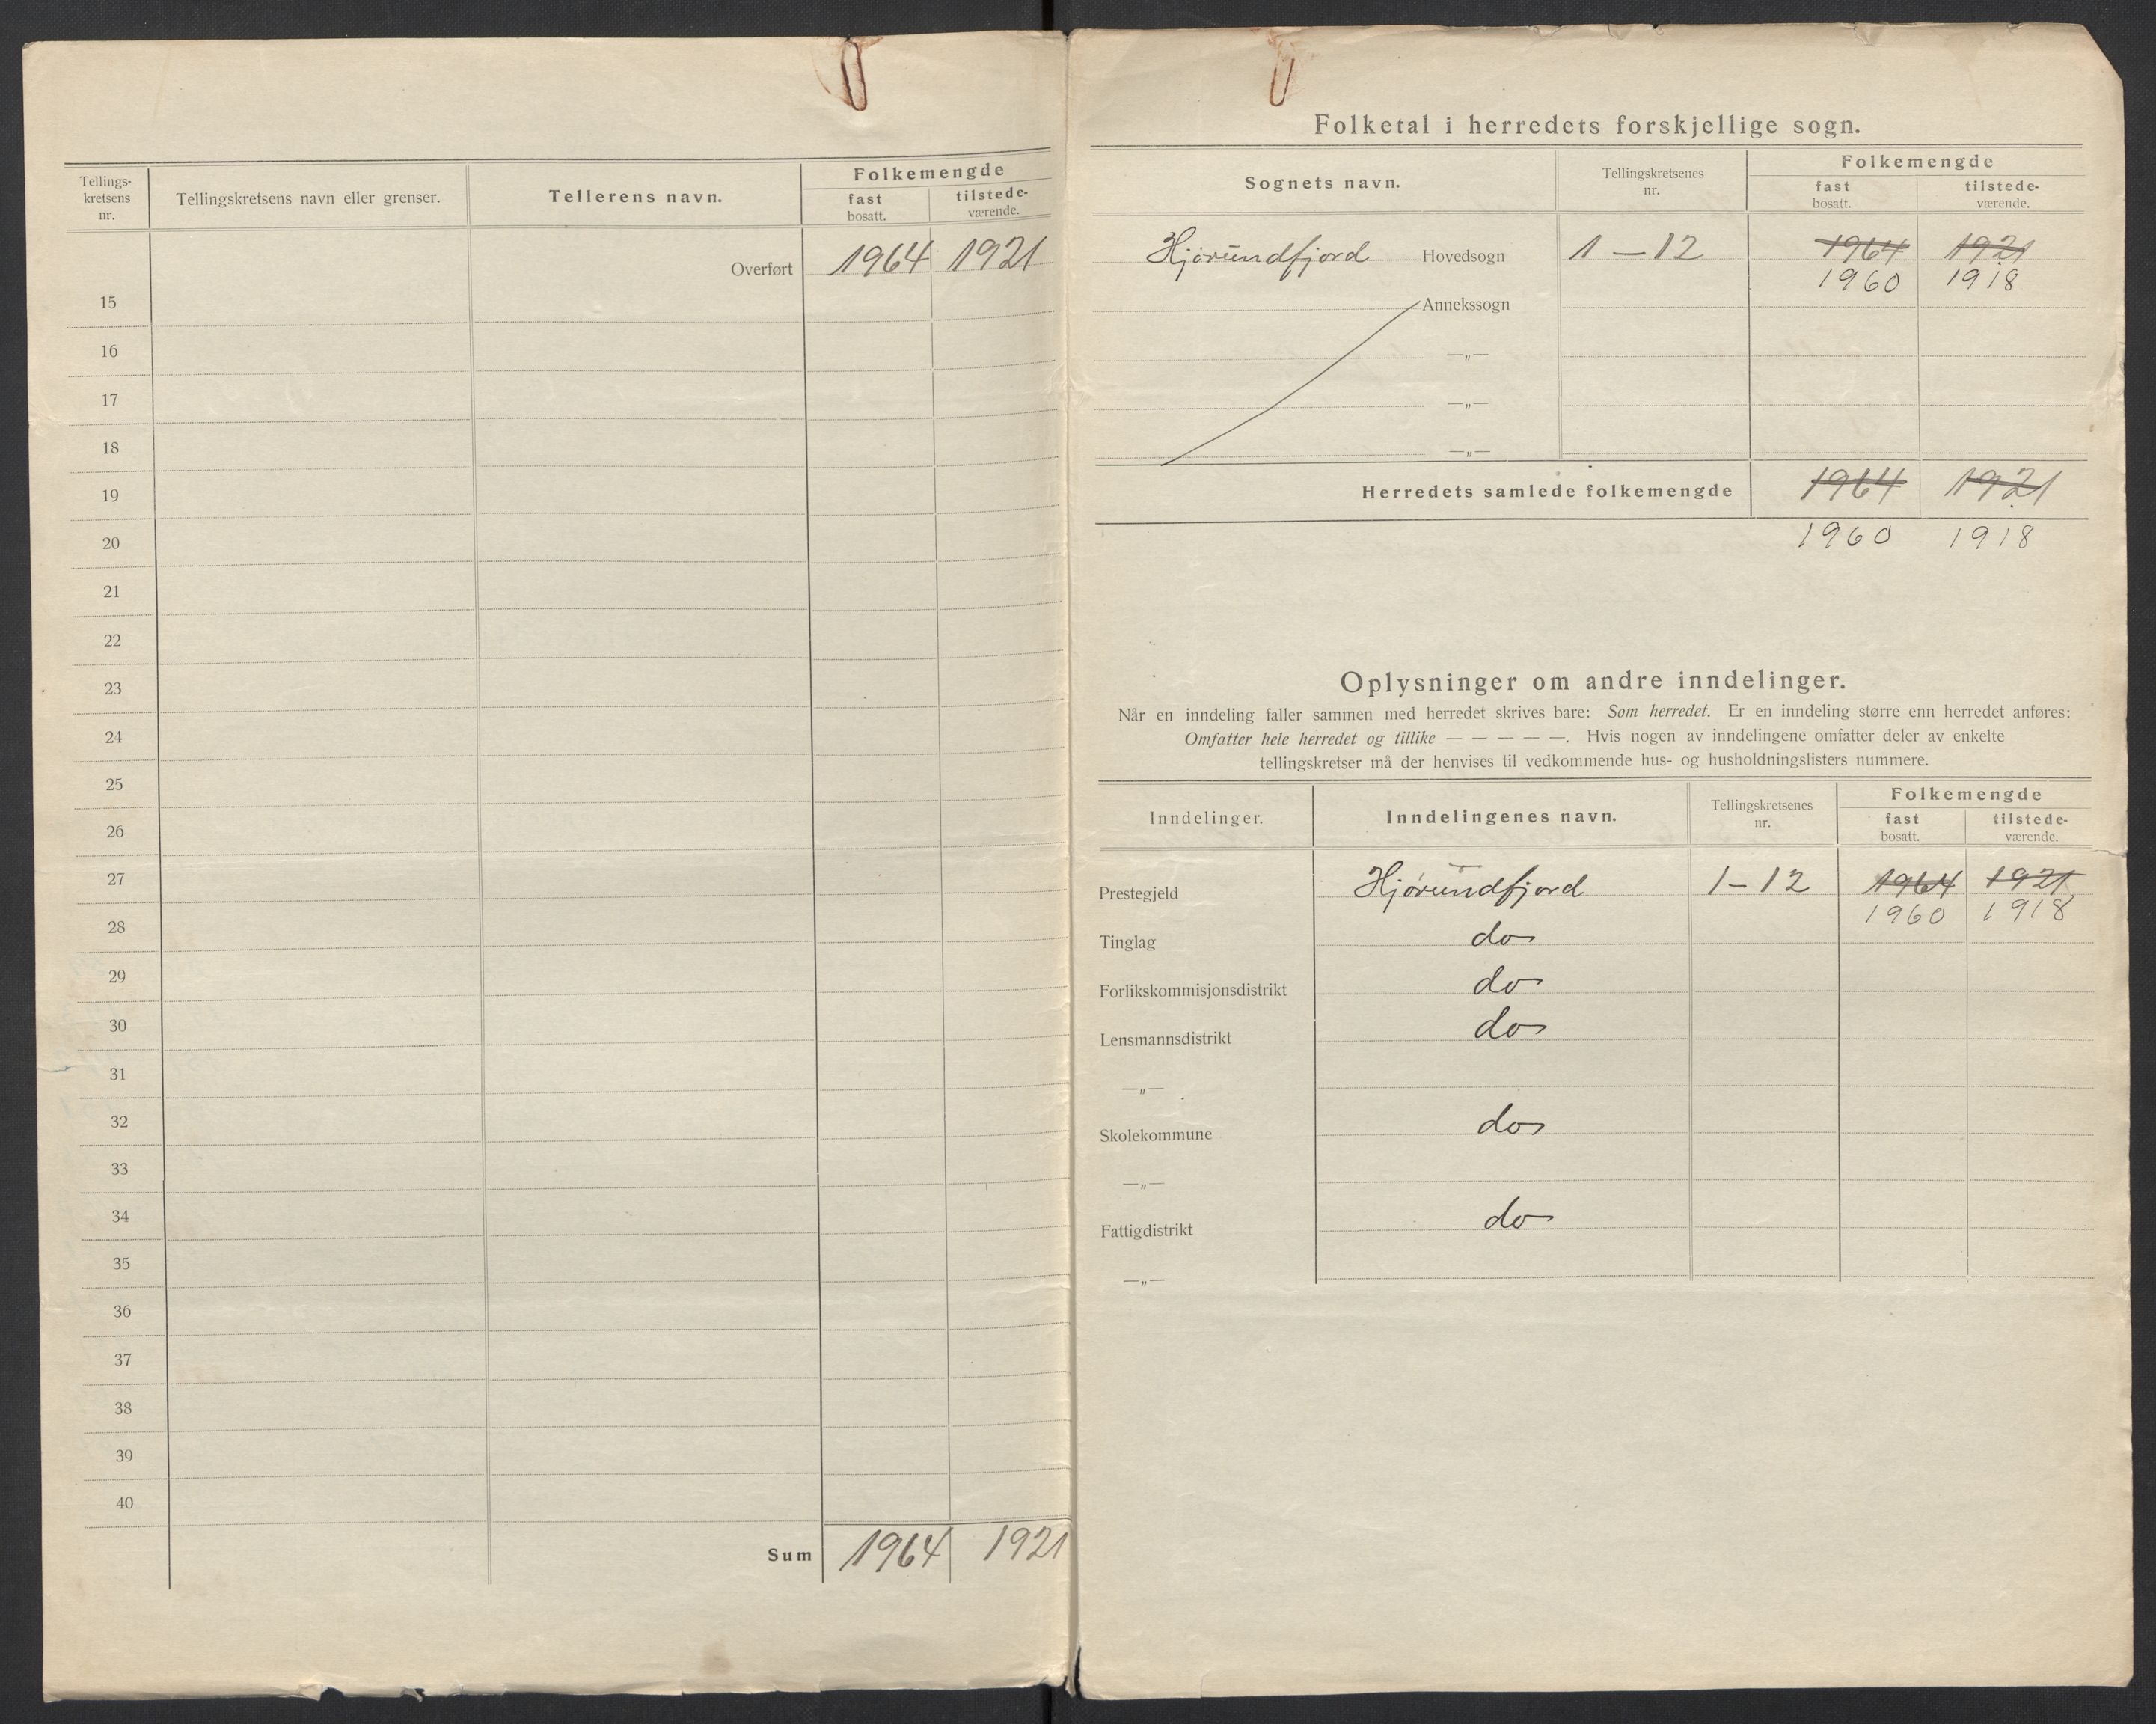 Tellings-
kretsens
nr.
Tellingskretsens navn eller grenser.
Tellerens navn.
Folkemengde
fast
bosatt.
tilstede-
værende.
Overført 1964 1921
15
16
17
18
19
20
21
22
23
24
25
26
27
28
29
30
31
32
33
34
35
36
37
38
39
40
Sum 1964 1921
Folketal i herredets forskjellige sogn.
Sognets navn.
Tellingskretsenes
nr.
Folkemengde
fast
bosatt.
tilstede-
værende.
Hjørundfjord Hovedsogn 1-12 1964 1921
1960 1918
Annekssogn
—„—
—„—
—„—
Herredets samlede folkemengde 1964 1921
1960 1918
Oplysninger om andre inndelinger.
Når en inndeling faller sammen med herredet skrives bare: Som herredet. Er en inndeling større enn herredet anføres:
Omfatter hele herredet og tillike — — — — —. Hvis nogen av inndelingene omfatter deler av enkelte
tellingskretser må der henvises til vedkommende hus- og husholdningslisters nummere.
Inndelinger.
Inndelingenes navn.
Tellingskretsenes
nr.
Folkemengde
fast
bosatt.
tilstede-
værende.
Prestegjeld Hjørundfjord 1-12 1964 1921
1960 1918
Tinglag do
Forlikskommisjonsdistrikt do
Lensmannsdistrikt do
—„—
Skolekommune do
—„—
Fattigdistrikt do
—„—